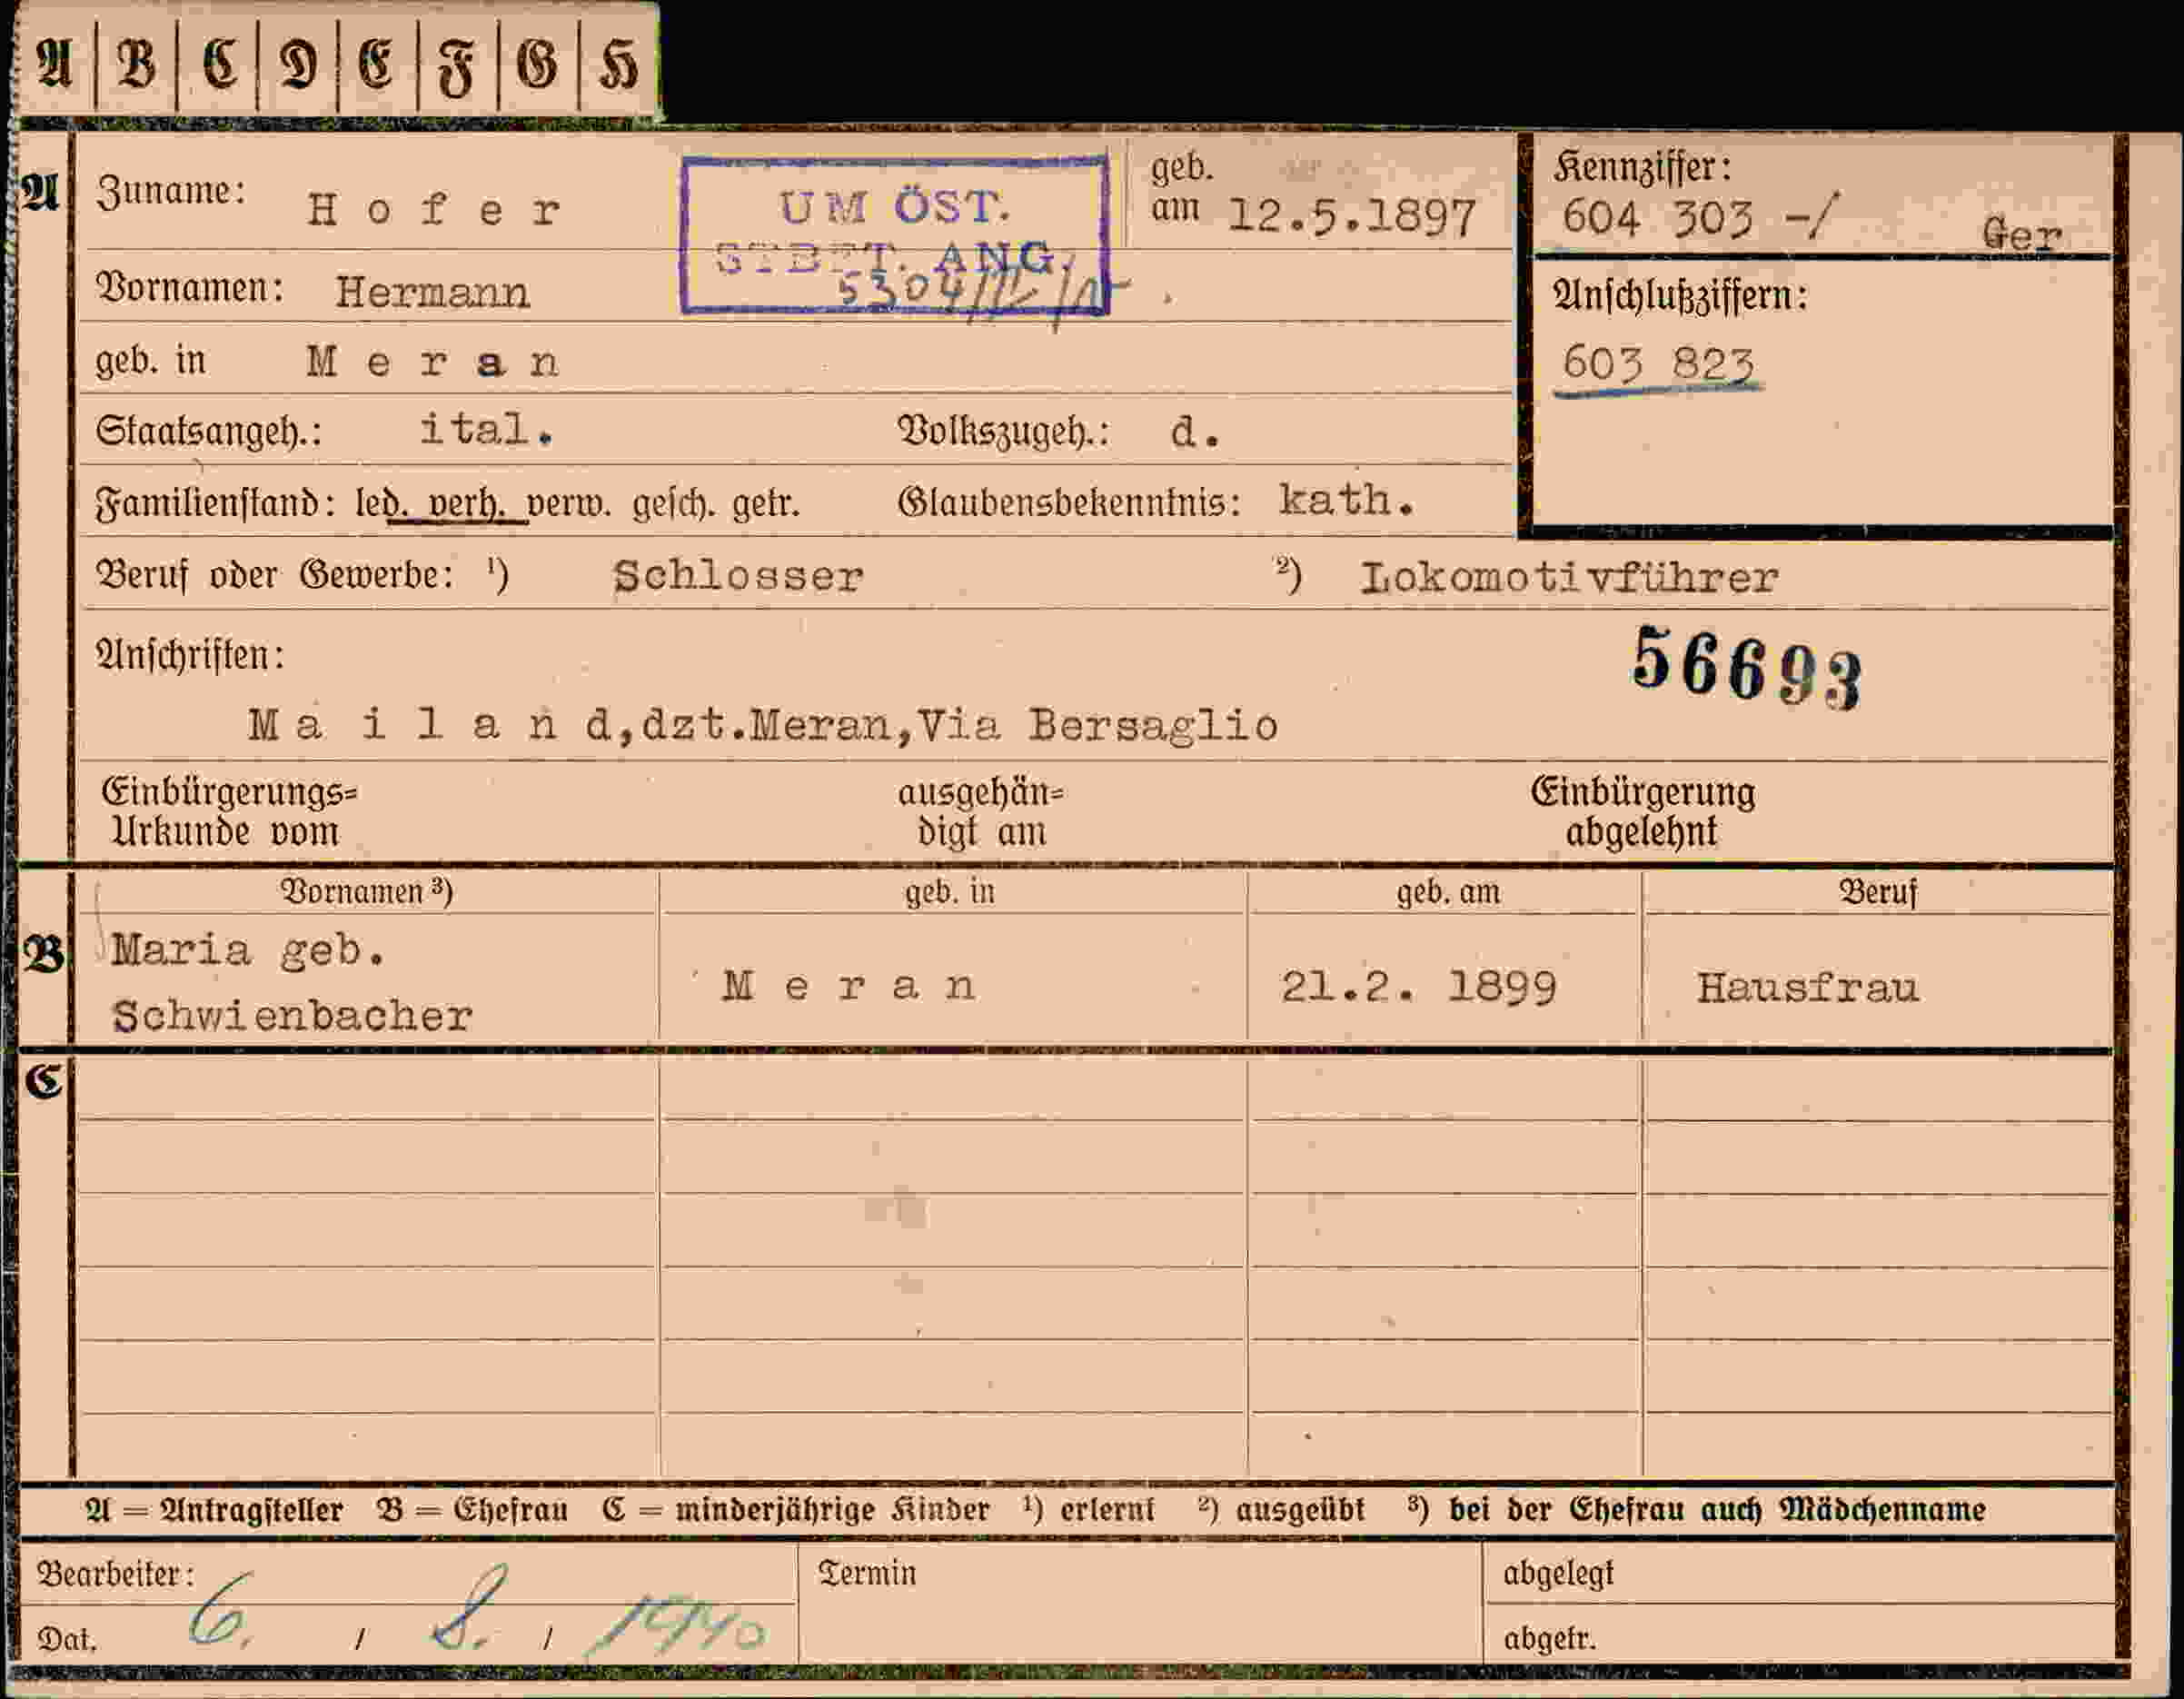 A B C D E F G H
A Zuname: Hofer
UM ÖST.
STBET. ANG.
geb.
am 12.5.1897
Kennziffer:
604 303 -/ Ger
Vornamen: Hermann
Anschlußziffern:
603 823
geb. in Meran
Staatsangeh.: ital. Volkszugeh.: d.
Familienstand: led. verh. verw. gesch. getr. Glaubensbekenntnis: kath.
Beruf oder Gewerbe: ¹) Schlosser ²) Lokomotivführer
Anschriften:
56693
Mailand,dzt.Meran,Via Bersaglio
Einbürgerungs=
Urkunde vom
ausgehän=
digt am
Einbürgerung
abgelehnt
Vornamen ³) geb. in geb. am Beruf
B Maria geb.
Schwienbacher
Meran 21.2. 1899 Hausfrau
C
A = Antragsteller B = Ehefrau C = minderjährige Kinder ¹) erlernt ²) ausgeübt ³) bei der Ehefrau auch Mädchenname
Bearbeiter: Termin abgelegt
Dat. 6. / 8. / 1940 abgetr.